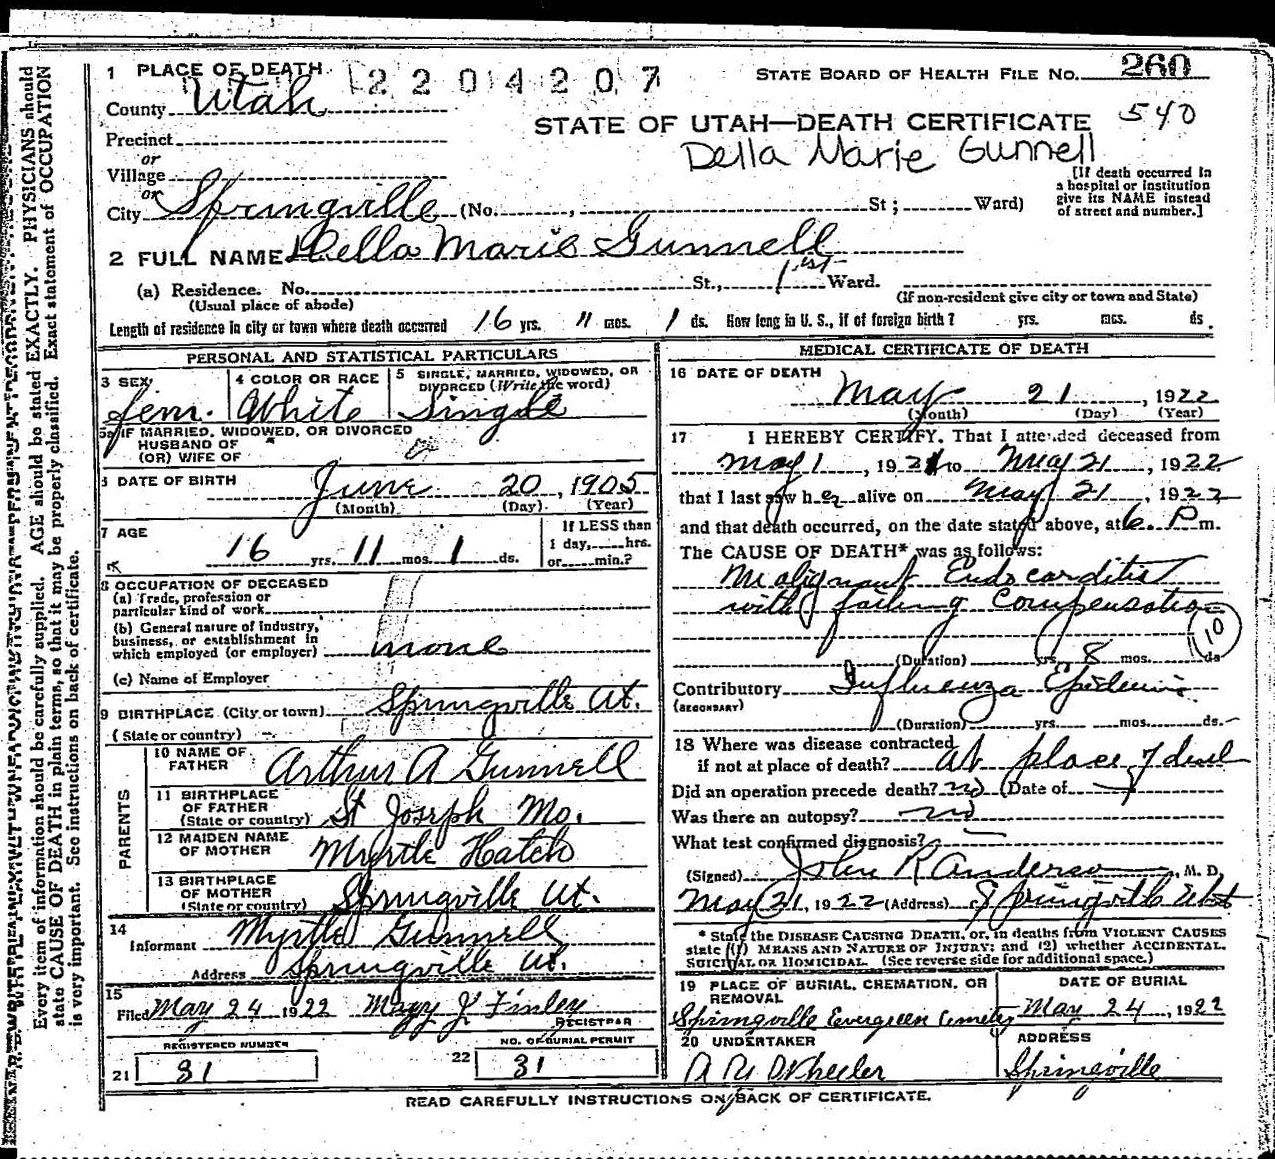 1 PLACE OF DEATH 2204207 STATE BOARD OF HEALTH FILE No. 260
County Utah 540
STATE OF UTAH—DEATH CERTIFICATE
Precinct
Della Marie Gunnell
or
Village
or
City Springville (No. , St; Ward)
[If death occurred in
a hospital or institution
give its NAME instead
of street and number.]
2 FULL NAME Della Marie Gunnell
(a) Residence. No. St., 1st Ward.
(Usual place of abode) (If non-resident give city or town and State)
Length of residence in city or town where death occurred 16 yrs. 11 mos. 1 ds. How long in U. S., if of foreign birth? yrs. mos. ds.
PERSONAL AND STATISTICAL PARTICULARS
3 SEX 4 COLOR OR RACE 5 SINGLE, MARRIED, WIDOWED, OR
DIVORCED (Write the word)
fem. White Single
5a IF MARRIED, WIDOWED, OR DIVORCED
HUSBAND OF
(OR) WIFE OF
6 DATE OF BIRTH June 20, 1905
(Month) (Day) (Year)
7 AGE If LESS than
16 yrs. 11 mos. 1 ds. 1 day, hrs.
or min.?
8 OCCUPATION OF DECEASED
(a) Trade, profession or
particular kind of work
(b) General nature of industry,
business, or establishment in
which employed (or employer) none
(c) Name of Employer
9 BIRTHPLACE (City or town) Springville Ut.
(State or country)
PARENTS
10 NAME OF
FATHER Arthur A Gunnell
11 BIRTHPLACE
OF FATHER
(State or country) St Joseph Mo.
12 MAIDEN NAME
OF MOTHER Myrtle Hatch
13 BIRTHPLACE
OF MOTHER
(State or country) Springville Ut.
14
Informant Myrtle Gunnell
Address Springville Ut.
15
Filed May 24 1922 Mary J. Finley
REGISTRAR
REGISTERED NUMBER NO. OF BURIAL PERMIT
21 31 22 31
MEDICAL CERTIFICATE OF DEATH
16 DATE OF DEATH
May 21, 1922
(Month) (Day) (Year)
17 I HEREBY CERTIFY, That I attended deceased from
May 1, 1921 to May 21, 1922
that I last saw her alive on May 21, 1922
and that death occurred, on the date stated above, at 6. P m.
The CAUSE OF DEATH* was as follows:
Malignant Endocarditis
with failing compensation
10
(Duration) yrs. 8 mos. ds
Contributory Influenza Epidemic
(SECONDARY)
(Duration) yrs. mos. ds.
18 Where was disease contracted
if not at place of death? at place of death
Did an operation precede death? no (Date of
Was there an autopsy? no
What test confirmed diagnosis?
(Signed) John R Anderson M. D.
May 21, 1922 (Address) Springville Utah
* State the DISEASE CAUSING DEATH, or, in deaths from VIOLENT CAUSES
state (1) MEANS AND NATURE OF INJURY; and (2) whether ACCIDENTAL,
SUICIDAL OR HOMICIDAL. (See reverse side for additional space.)
19 PLACE OF BURIAL, CREMATION, OR
REMOVAL DATE OF BURIAL
Springville Evergreen Cemetery May 24, 1922
20 UNDERTAKER ADDRESS
Wheeler Springville
READ CAREFULLY INSTRUCTIONS ON BACK OF CERTIFICATE.
Every item of information should be carefully supplied. AGE should be stated EXACTLY. PHYSICIANS should
state CAUSE OF DEATH in plain terms, so that it may be properly classified. Exact statement of OCCUPATION
is very important. See instructions on back of certificate.